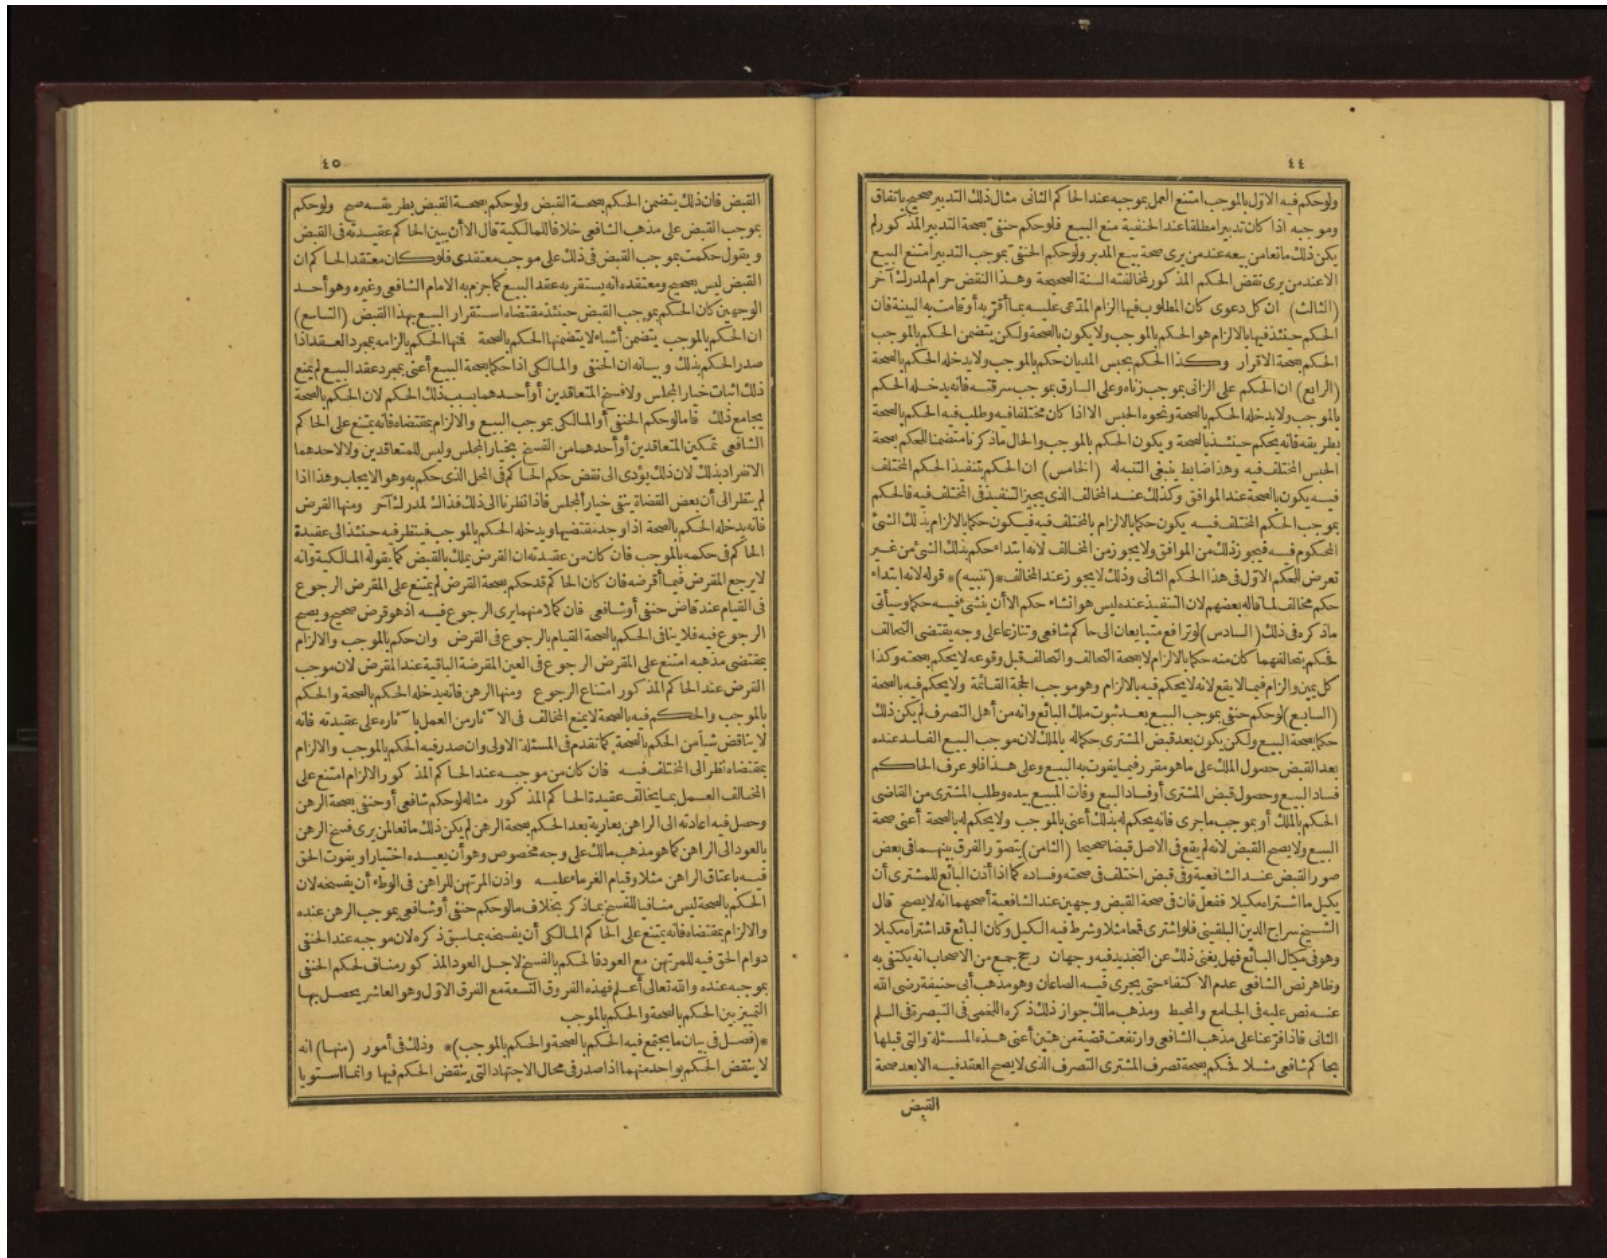 ٤٤
ولوحكم فيه الاول بالموجب امتنع العمل بموجبه عند الحاكم الثانى مثال ذلك التدبير صحيح باتفاق
وموجبه اذا كان تدبيرا مطلقا عند الحنفية منع البيع فلوحكم حنفى بصحة التدبير المذكور لم
يكن ذلك مانعا من بيعه عند من يرى صحة بيع المدبر ولوحكم الحنفى بموجب التدبير امتنع البيع
الاعند من يرى نقض الحكم المذكور لمخالفته السنة الصحيحة وهذا النقض حرام لمدرك آخر
(الثالث) ان كل دعوى كان المطلوب فيها الزام المدعى عليه بما أقر به أو قامت به البينة فان
الحكم حينئذ فيها بالالزام هو الحكم بالموجب ولا يكون بالصحة ولكن يتضمن الحكم بالموجب
الحكم بصحة الاقرار وكذا الحكم بحبس المديان حكم بالموجب ولا يدخله الحكم بالصحة
(الرابع) ان الحكم على الزانى بموجب زناه وعلى السارق بموجب سرقته فانه يدخله الحكم
بالموجب ولا يدخله الحكم بالصحة ونحوه الحبس الا اذا كان مختلفا فيه وطلب فيه الحكم بالصحة
بطريقه فانه يحكم حينئذ بالصحة ويكون الحكم بالموجب والحال ماذكرنا متضمنا للحكم بصحة
الحبس المختلف فيه وهذا ضابط ينبغى التنبه له (الخامس) ان الحكم بتنفيذ الحكم المختلف
فيه يكون بالصحة عند الموافق وكذلك عند المخالف الذى يجيز التنفيذ فى المختلف فيه فالحكم
بموجب الحكم المختلف فيه يكون حكما بالالزام بالمختلف فيه فيكون حكما بالالزام بذلك الشئ
المحكوم فيه فيجوز ذلك من الموافق ولا يجوز من المخالف لانه ابتداء حكم بذلك الشئ من غير
تعرض للحكم الاول فى هذا الحكم الثانى وذلك لا يجوز عند المخالف *(تنبيه)* قوله لانه ابتداء
حكم مخالف لما قاله بعضهم لان التنفيذ عنده ليس هو انشاء حكم الا أن ينشئ فيه حكما وسيأتى
ماذكره فى ذلك (السادس) لو ترافع متبايعان الى حاكم شافعى وتنازعا على وجه يقتضى التحالف
فحكم بتحالفهما كان منه حكما بالالزام لا بصحة التحالف والتحالف قبل وقوعه لا يحكم بصحته وكذا
كل يمين والزام فيما لا يقع لانه لا يحكم فيه بالالزام وهو موجب الحجة القائمة ولا يحكم فيه بالصحة
(السابع) لوحكم حنفى بموجب البيع بعد ثبوت ملك البائع وانه من أهل التصرف لم يكن ذلك
حكما بصحة البيع ولكن يكون بعد قبض المشترى حكما له بالملك لان موجب البيع الفاسد عنده
بعد القبض حصول الملك على ما هو مقرر فيما يفوت به البيع وعلى هذا فلو عرف الحاكم
فساد البيع وحصول قبض المشترى أو فساد البيع وفات المبيع بيده وطلب المشترى من القاضى
الحكم بالملك أو بموجب ماجرى فانه يحكم له بذلك أعنى بالموجب ولا يحكم له بالصحة أعنى صحة
البيع ولا يصح القبض لانه لم يقع فى الاصل قبضا صحيحا (الثامن) يتصور الفرق بينهما فى بعض
صور القبض عند الشافعية وفى قبض اختلف فى صحته وفساده كما اذا أذن البائع للمشترى أن
يكيل ما اشتراه مكيلا ففعل فان فى صحة القبض وجهين عند الشافعية أصحهما انه لا يصح قال
الشيخ سراج الدين البلقينى فلو اشترى قمحا مثلا وشرط فيه الكيل وكان البائع قد اشتراه مكيلا
وهو فى مكيال البائع فهل يغنى ذلك عن التجديد فيه وجهان رجح جمع من الاصحاب انه يكتفى به
وظاهر نص الشافعى عدم الاكتفاء حتى يجرى فيه الصاعان وهو مذهب أبى حنيفة رضى الله
عنه نص عليه فى الجامع والمحيط ومذهب مالك جواز ذلك ذكره اللخمى فى التبصرة فى السلم
الثانى فاذا فرعنا على مذهب الشافعى وارتفعت قضية من هتين أعنى هذه المسئلة والتى قبلها
بحاكم شافعى مثلا فحكم بصحة تصرف المشترى التصرف الذى لا يصح العقد فيه الا بعد صحة
القبض
٤٥
القبض فان ذلك يتضمن الحكم بصحة القبض ولوحكم بصحة القبض بطريقه صح ولوحكم
بموجب القبض على مذهب الشافعى خلافا للمالكية قال الا أن يبين الحاكم عقيدته فى القبض
ويقول حكمت بموجب القبض فى ذلك على موجب معتقدى فلو كان معتقد الحاكم ان
القبض ليس بصحيح ومعتقده انه يستقر به عقد البيع كما جزم به الامام الشافعى وغيره وهو أحد
الوجهين كان الحكم بموجب القبض حينئذ مقتضاه استقرار البيع بهذا القبض (التاسع)
ان الحكم بالموجب يتضمن أشياء لا يتضمنها الحكم بالصحة فمنها الحكم بالزامه بمجرد العقد اذا
صدر الحكم بذلك وبيانه ان الحنفى والمالكى اذا حكما بصحة البيع أعنى بمجرد عقد البيع لم يمنع
ذلك اثبات خيار المجلس ولا فسخ المتعاقدين أو أحدهما بسبب ذلك الحكم لان الحكم بالصحة
يجامع ذلك فاما لوحكم الحنفى أو المالكى بموجب البيع والالزام بمقتضاه فانه يمتنع على الحاكم
الشافعى تمكين المتعاقدين أو أحدهما من الفسخ بخيار المجلس وليس للمتعاقدين ولا لاحدهما
الانفراد بذلك لان ذلك يؤدى الى نقض حكم الحاكم فى المحل الذى حكم به وهو الايجاب وهذا اذا
لم ينظر الى أن بعض القضاة ينفى خيار المجلس فاذا نظرنا الى ذلك فذاك لمدرك آخر ومنها القرض
فانه يدخله الحكم بالصحة اذا وجد مقتضيها ويدخله الحكم بالموجب فينظر فيه حينئذ الى عقيدة
الحاكم فى حكمه بالموجب فان كان من عقيدته ان القرض يملك بالقبض كما يقوله المالكية وانه
لا يرجع المقرض فيما أقرضه فان كان الحاكم قد حكم بصحة القرض لم يمتنع على المقرض الرجوع
فى القيام عند قاض حنفى أو شافعى فان كلا منهما يرى الرجوع فيه اذ هو قرض صحيح ويصح
الرجوع فيه فلا ينافى الحكم بالصحة القيام بالرجوع فى القرض وان حكم بالموجب والالزام
بمقتضى مذهبه امتنع على المقرض الرجوع فى العين المقرضة الباقية عند المقرض لان موجب
القرض عند الحاكم المذكور امتناع الرجوع ومنها الرهن فانه يدخله الحكم بالصحة والحكم
بالموجب والحكم فيه بالصحة لا يمنع المخالف فى الآثار من العمل بآثاره على عقيدته فانه
لا يناقض شيأ من الحكم بالصحة كما تقدم فى المسئلة الاولى وان صدر فيه الحكم بالموجب والالزام
بمقتضاه نظر الى المختلف فيه فان كان من موجبه عند الحاكم المذكور الالزام امتنع على
المخالف العمل بما يخالف عقيدة الحاكم المذكور مثاله لوحكم شافعى أو حنفى بصحة الرهن
وحصل فيه اعادته الى الراهن بعارية بعد الحكم بصحة الرهن لم يكن ذلك مانعا لمن يرى فسخ الرهن
بالعود الى الراهن كما هو مذهب مالك على وجه مخصوص وهو أن يعيده اختيارا ويفوت الحق
فيه باعتاق الراهن مثلا وقيام الغرماء عليه واذن المرتهن للراهن فى الوطء أن يفسخه لان
الحكم بالصحة ليس منافيا للفسخ بماذكر بخلاف مالوحكم حنفى أو شافعى بموجب الرهن عنده
والالزام بمقتضاه فانه يمتنع على الحاكم المالكى أن يفسخه بما سبق ذكره لان موجبه عند الحنفى
دوام الحق فيه للمرتهن مع العود فالحكم بالفسخ لاجل العود المذكور مناف لحكم الحنفى
بموجبه عنده والله تعالى أعلم فهذه الفروق التسعة مع الفرق الاول وهو العاشر يحصل بها
التمييز بين الحكم بالصحة والحكم بالموجب
*(فصل فى بيان ما يجتمع فيه الحكم بالصحة والحكم بالموجب)* وذلك فى أمور (منها) انه
لا ينقض الحكم بواحد منهما اذا صدر فى محال الاجتهاد التى ينقض الحكم فيها وانما استويا